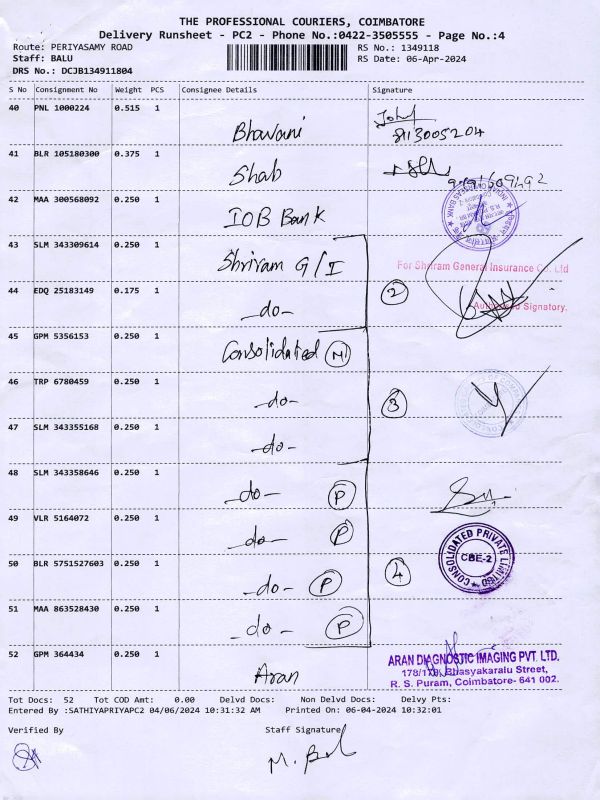 THE PROFESSIONAL COURIERS, COIMBATORE
Delivery Runsheet - PC2 - Phone No.:0422-3505555 - Page No.:4
Route: PERIYASAMY ROAD RS No.: 1349118
Staff: BALU RS Date: 06-Apr-2024
DRS No.: DCJB134911804
S No Consignment No Weight PCS Consignee Details Signature
40 PNL 1000224 0.515 1 Bhavani
8113005204
41 BLR 105180300 0.375 1 Shab
42 MAA 300568092 0.250 1 IOB Bank
INDIAN OVERSEAS BANK
43 SLM 343309614 0.250 1 Shriram G/I
For Shriram General Insurance Co. Ltd
44 EDQ 25183149 0.175 1 -do- 2
Authorised Signatory.
45 GPM 5356153 0.250 1 Consolidated M
46 TRP 6780459 0.250 1 -do- 3
47 SLM 343355168 0.250 1 -do-
48 SLM 343358646 0.250 1 -do- P
49 VLR 5164072 0.250 1 -do- P
CONSOLIDATED PRIVATE LIMITED
CBE-2
50 BLR 5751527603 0.250 1 -do- P 4
51 MAA 863528430 0.250 1 -do- P
52 GPM 364434 0.250 1 Aran
ARAN DIAGNOSTIC IMAGING PVT. LTD.
Bhasyakaralu Street,
R. S. Puram, Coimbatore- 641 002.
Tot Docs: 52 Tot COD Amt: 0.00 Delvd Docs: Non Delvd Docs: Delvy Pts:
Entered By :SATHIYAPRIYAPC2 04/06/2024 10:31:32 AM Printed On: 06-04-2024 10:32:01
Verified By Staff Signature